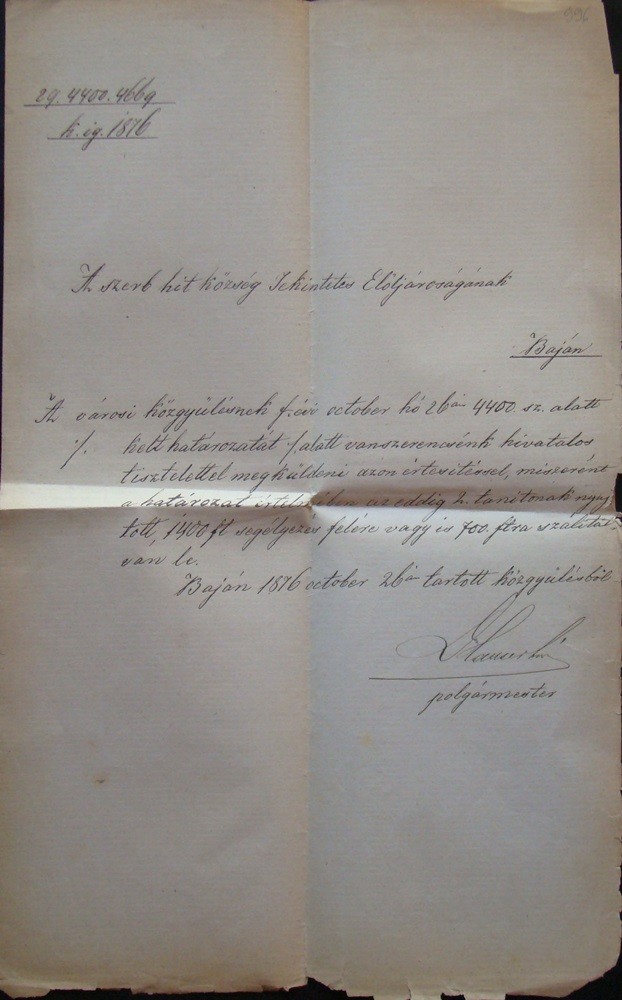 996
29. 4400. 4669
k. ig. 1876
Az szerb hit község Tekintetes Elöljároságának
Baján
Az városi közgyülésnek f. évi october hó 26án 4400. sz. alatt
·/. kelt határozatát ·/. alatt vanszerencsénk hivatalos
tisztelettel megküldeni azon értesitéssel, miszerént
a határozat értelmében az eddig 2. tanitonak nyuj
tott, 1400 ft segélyezés felére vagy is 700. ftra szalitva
van le.
Baján 1876 october 26án tartott közgyülésböl
polgármester